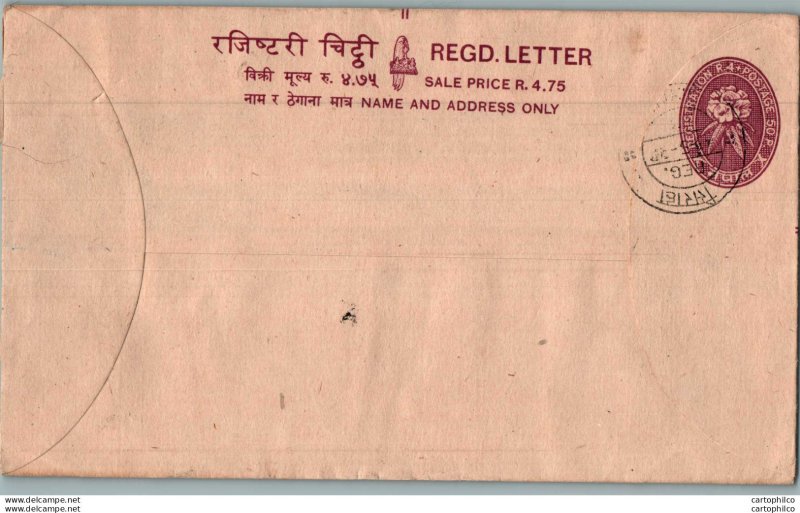 रजिष्टरी चिट्ठी REGD. LETTER
विक्री मूल्य रु. ४.७५ SALE PRICE R. 4.75
नाम र ठेगाना मात्र NAME AND ADDRESS ONLY
REGISTRATION R.4 POSTAGE 50P.
www.delcampe.net cartophilco
www.delcampe.net cartophilco